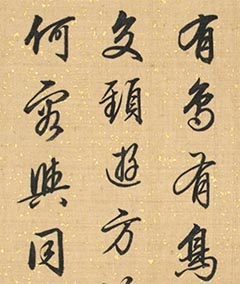 有鳥有鳥
交頸遊方
何容與同